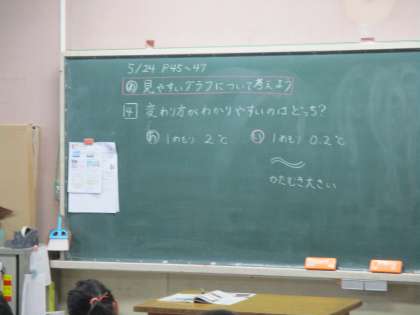 5/24 P45~47
め 見やすいグラフについて考えよう
4 変わり方がわかりやすいのはどっち?
あ 1めもり 2℃
い 1めもり 0.2℃
かたむき大きい